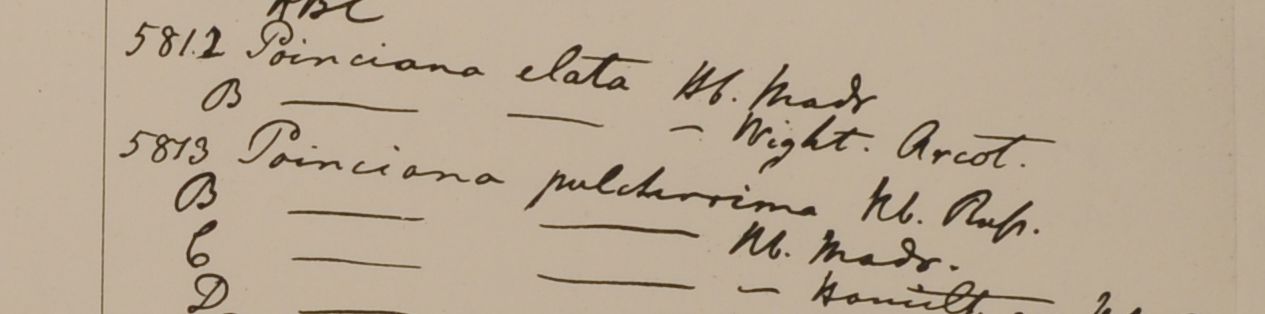 5812 Poinciana elata Hb. Madr
B — — — Wight. Arcot.
5813 Poinciana pulcherrima Hb. Rusp.
B — — Hb. Madr.
C — — —
D —